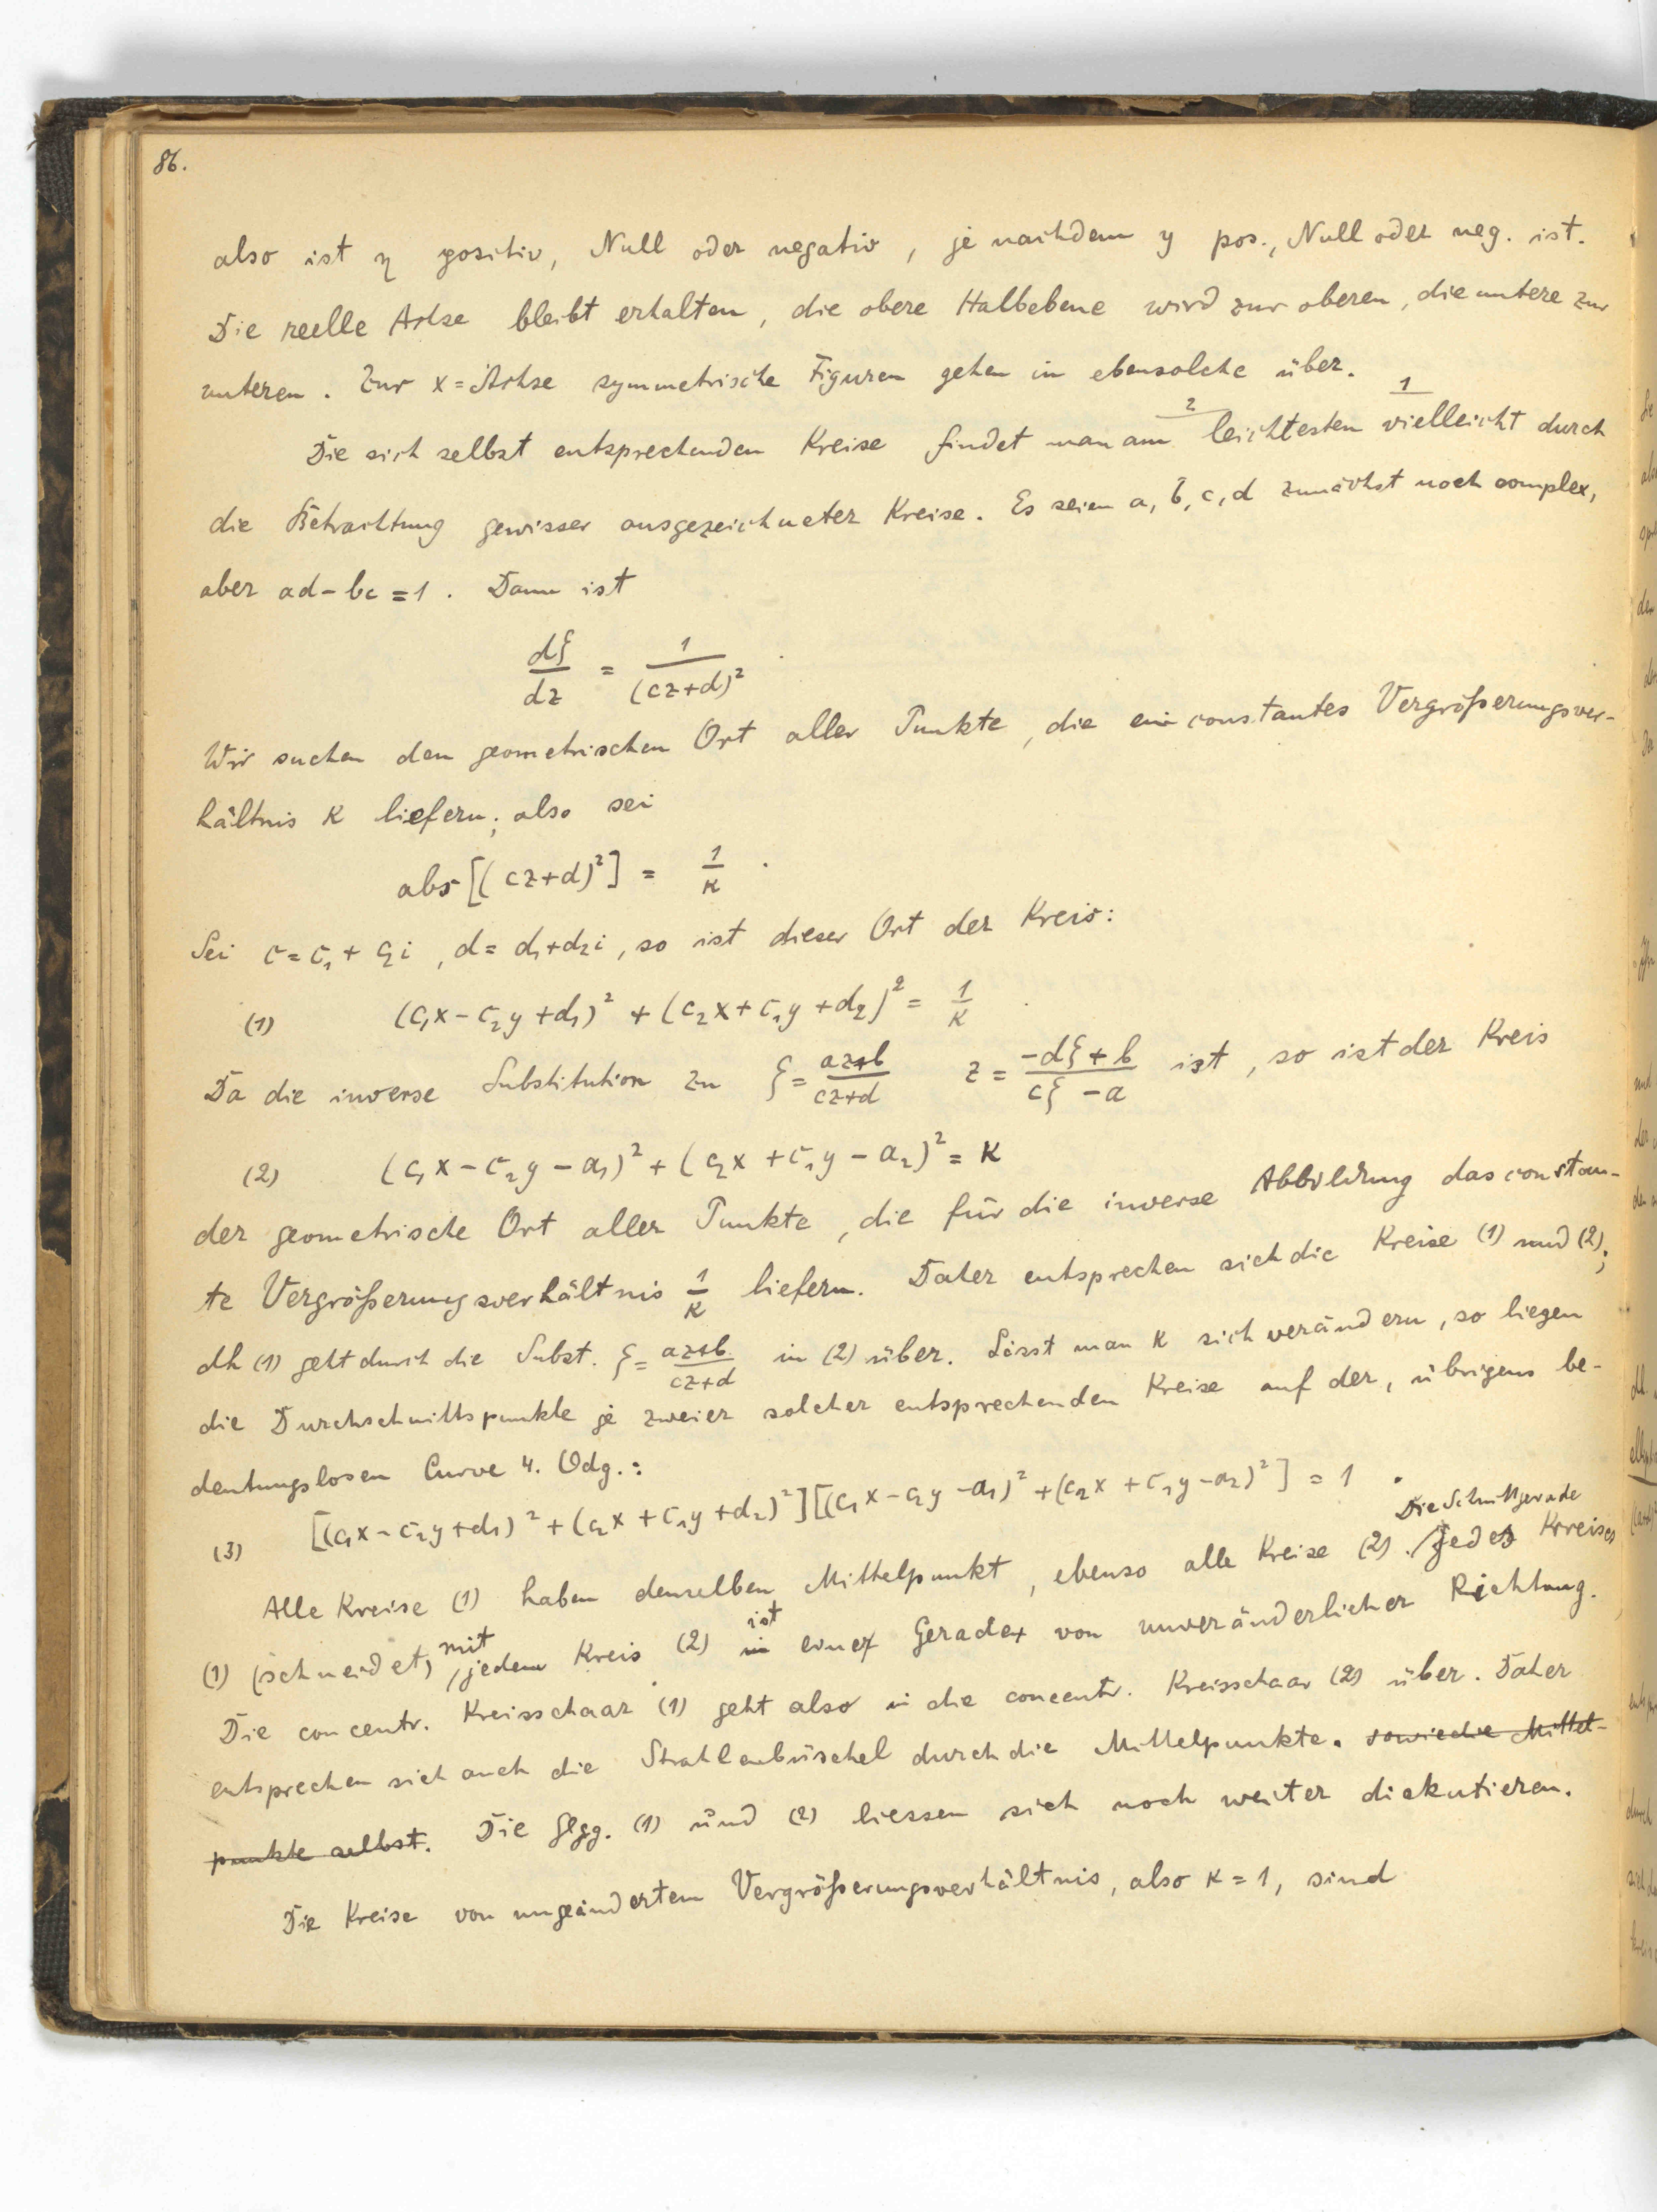 86.
also ist η positiv, Null oder negativ, je nachdem y pos., Null oder neg. ist.
Die reelle Achse bleibt erhalten, die obere Halbebene wird zur oberen, die untere zur
unteren. Zur x=Achse symmetrische Figuren gehen in ebensolche über.
Die sich selbst entsprechenden Kreise findet man am 2 leichtesten 1 vielleicht durch
die Betrachtung gewisser ausgezeichneter Kreise. Es seien a, b, c, d zunächst noch complex,
aber ad - bc = 1. Dann ist
dζ/dz = 1/(cz+d)².
Wir suchen den geometrischen Ort aller Punkte, die ein constantes Vergrößerungsver-
hältnis κ liefern; also sei
abs[(cz+d)²] = 1/κ.
Sei c = c₁ + c₂i, d = d₁+d₂i, so ist dieser Ort der Kreis:
(1) (c₁x - c₂y + d₁)² + (c₂x + c₁y + d₂)² = 1/κ.
Da die inverse Substitution zu ζ = az+b/cz+d z = -dζ+b/cζ-a ist, so ist der Kreis
(2) (c₁x - c₂y - a₁)² + (c₂x + c₁y - a₂)² = κ
der geometrische Ort aller Punkte, die für die inverse Abbildung das constan-
te Vergrößerungsverhältnis 1/κ liefern. Daher entsprechen sich die Kreise (1) und (2);
dh (1) geht durch die Subst. ζ = az+b/cz+d in (2) über. Lässt man κ sich verändern, so liegen
die Durchschnittspunkte je zweier solcher entsprechenden Kreise auf der, übrigens be-
deutungslosen Curve 4. Odg.:
(3) [(c₁x - c₂y + d₁)² + (c₂x + c₁y + d₂)²][(c₁x - c₂y - a₁)² + (c₂x + c₁y - a₂)²] = 1.
Die Schnittgerade
Alle Kreise (1) haben denselben Mittelpunkt, ebenso alle Kreise (2). jedes Kreises
(1) (schneidet) mit jedem Kreis (2) in ist einer Gerade von unveränderlicher Richtung.
Die concentr. Kreisschaar (1) geht also in die concentr. Kreisschaar (2) über. Daher
entsprechen sich auch die Strahlenbüschel durch die Mittelpunkte. sowie die Mittel-
punkte selbst. Die Glgg. (1) und (2) liessen sich noch weiter diskutieren.
Die Kreise von ungeändertem Vergrößerungsverhältnis, also κ = 1, sind